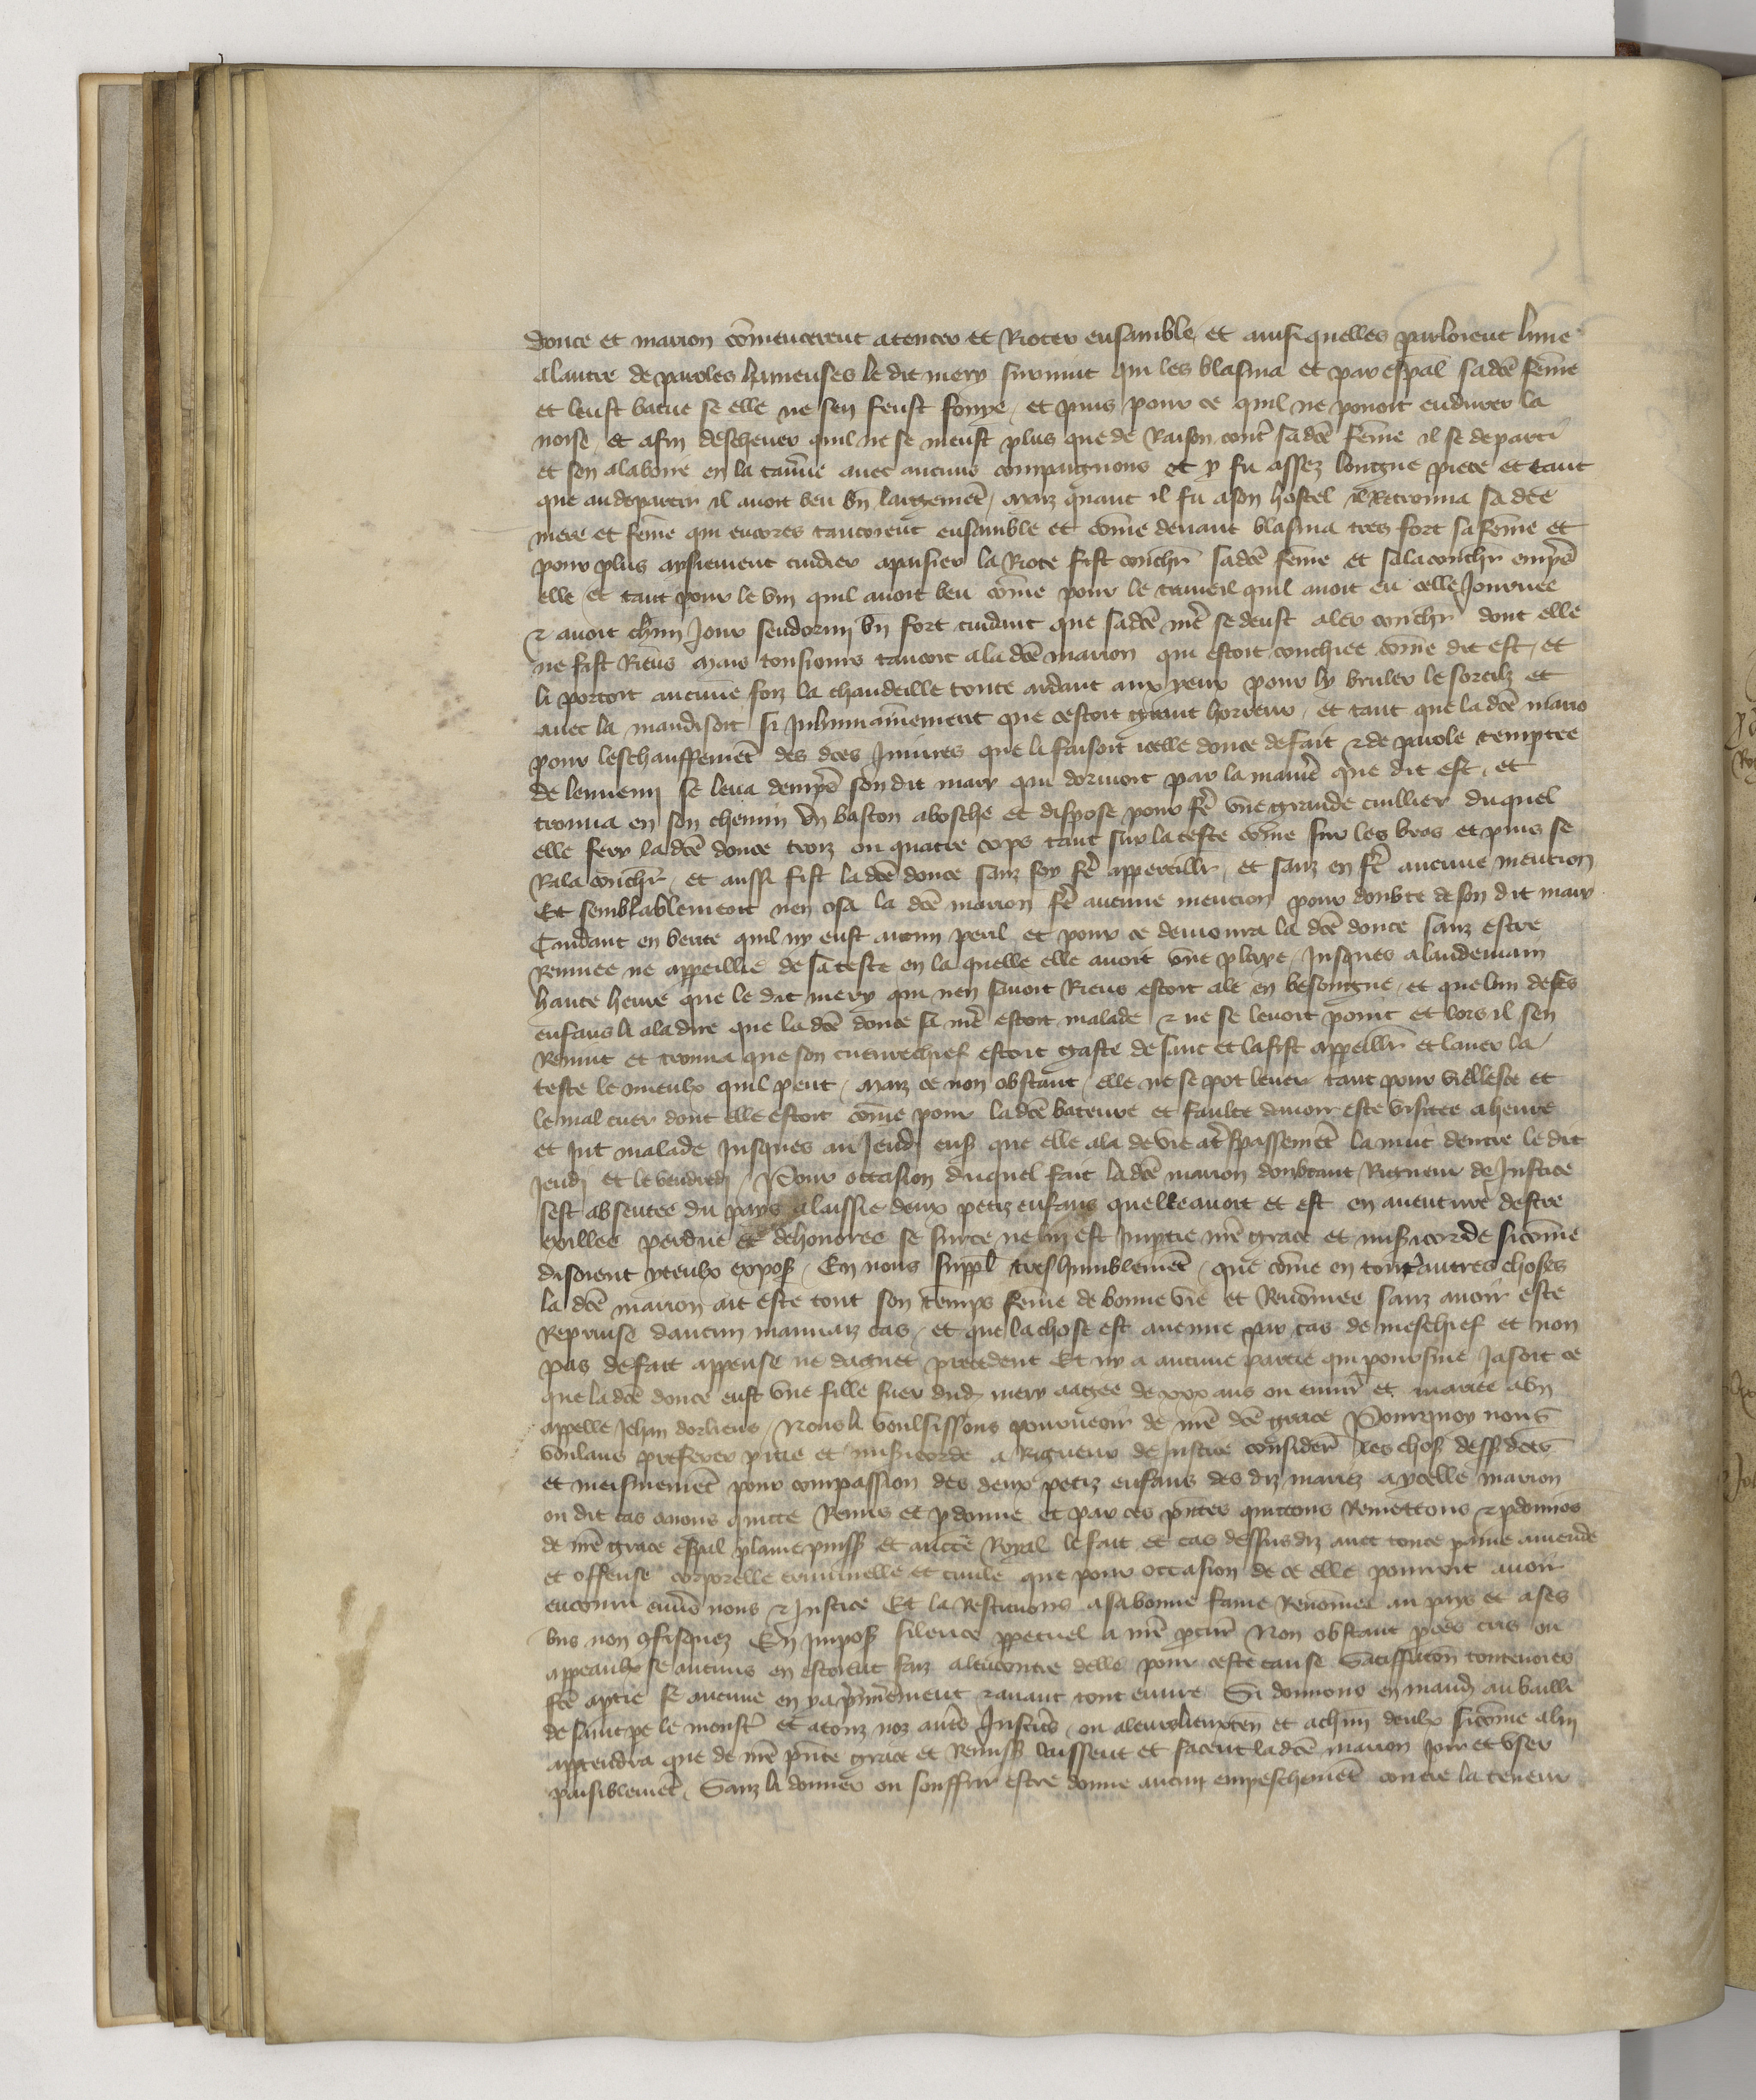 Douce et marion cõmencerent a tencer et Rioter ensamble et ainsi quelles parloient lune
a lautre de paroles haineuses le dit mery survint qui les blasma et par espal sa dcẽ fẽme
et leust batue se elle ne sen feust fouye / et puis pour ce quil ne pouoit endurer la
noise / et afin deschever quil ne se meust plus que de Raison contr̃ sa dcẽ fẽme il se departi
et sen ala boire en la tav̾ne avec aucuns compaignons et y fu assez longue piece et tant
que au departir il avoit beu bn̄ largemẽt / maiz quant il fu a son hostel il Retrouva sa dcẽ
mere et fẽme qui encores tancoient ensamble et cõme devant blasma tres fort sa fẽme et
pour plus aysiement cuidier apaisier la Riote fist couchr̃ sa dcẽ fẽme et sala couchr̃ empr̃s
elle et tant pour le vin quil avoit beu cõme pour le traveil quil avoit eu celle Journee
⁊ avoit chũn Jour sendormy bn̄ fort cuidant que sa dcẽ mẽr se deust aler couchr̃ dont elle
ne fist Riens mais tousiours tancoit a la dcẽ marion qui estoit couchiee cõme dit est / et
li portoit aucune foiz la chandeille toute ardant aux yeux pour ly bruler le sorcilz et
avec la maudisoit si Inhumainement que cestoit grant horreur / et tant que la dcẽ mario
pour leschauffemẽt des dces Iniures que li faisoit icelle douce de fait ⁊ de parole temptee
de lennemi se leva dempr̃s son dit mary qui dormoit par la manẽr que dit est / et
trouva en son chemin un baston abosche et dispose pour fẽr une grande cuillier duquel
elle fery la dcẽ douce troiz ou quatre cops tant sur la teste cõme sur les bras et puis se
Rala couchr̃ / et aussi fist la dcẽ douce sanz soy fẽr appareillr̃ / et sanz en fẽr aucune mencion
Et semblablement nen osa la dcẽ marion fẽr aucune mencion pour doubte de son dit mary
Cuidant en verite quil ny eust aucun peril et pour ce demoura la dcẽ douce sanz estre
Remuee ne appeillie de sa teste en la quelle elle avoit une playe / Jusques a landemain
haute heure que le dit mery qui nen savoit Riens estoit ale en besongne / et que lun de ses
enfans li ala dire que la dcẽ douce sa mẽr estoit malade ⁊ ne se levoit point et lors il sen
Revint et trouva que son cuevrechief estoit gaste de sanc et la fist appeillr̃ et laver la
teste le mieulx quil peut / maiz ce non obstant / elle ne se pot lever tant pour viellesce et
le mal cuer dont elle estoit cõme pour la dcẽ bateure et faulte davoir este visitee a heure
et Jut malade Jusques au Jeudi ens̃ que elle ala de vie a tr̃spassemẽt la nuit dentre le dit
Jeudi et le vendredi / Pour occasion duquel fait la dcẽ marion doubtant Rigueur de Justice
sest absentee du pays a laissie deux petiz enfans quelle avoit et est en aventure destre
exillee perdue et dehonoree se sur ce ne luy est Imptie nr̃e grace et misericorde sicõme
disoient yceulx expos̃ / En nous suppl̃ tres humblemẽt / que cõme en toutes autres choses
la dcẽ marion ait este tout son temps fẽme de bonne vie et Renõmee sanz avoir este
Reprinse daucun mauvaiz cas / et que la chose est avenue par cas de meschief et non
pas de fait appense ne daguet precedent Et ny a aucune partie qui poursuie Jasoit ce
que la dcẽ douce eust une fille suer dud̾ mery aagee de xxx ans ou envir̃ et mariee a un
appelle Jehan dorliens / Nous li voulsissons pourveoir de nr̃e dcẽ grace Pourquoy nous
voulans preferer pitie et misericorde a Rigueur de Justice consider̃ les chos̃ dess̃ dces
et meismemẽt pour compassion des deux petiz enfans des diz mariez a ycelle marion
ou dit cas avons quitte Remis et pdonne et par ces pñtes quittons Remettons ⁊ pdonnõs
de nr̃e grace espal plaine puiss̃ et auctẽ Royal le fait et cas dessusdiz avec toute paine amende
et offense corporelle criminelle et civile que pour occasion de ce elle pourroit avoir
encouru envers nous ⁊ Justice Et la Restituons a sa bonne fame Renõmee au pays et a ses
bns non 9fisquez En Impos̃ silence ppetuel a nr̃e pcur̃ Non obstant pces cris ou
appeaulx se aucuns en estoient faiz alencontre delle pour ceste cause Satisffacõn toutevoies
fcẽ a ptie se aucune en y a p̃mierement ⁊ avant tout euvre Si donnons en mand̃ au bailli
de saint pẽ le moust̾ et a touz noz autr̃s Justic̾s / ou a leurs lieuxten̾ et a chũn deulx sicõme a luy
apptendra que de nr̃e pñte grace et Remiss̃ laissent et facent la dcẽ marion Jouir et user
paisiblemẽt / Sanz li donner ou souffrir estre donne aucun empeschemẽt contre la teneur